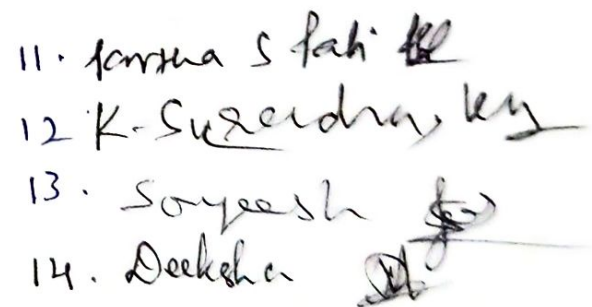 11. Karsha S Pati
12 K. Surendra
13. Sorgeesh
14. Deeksha